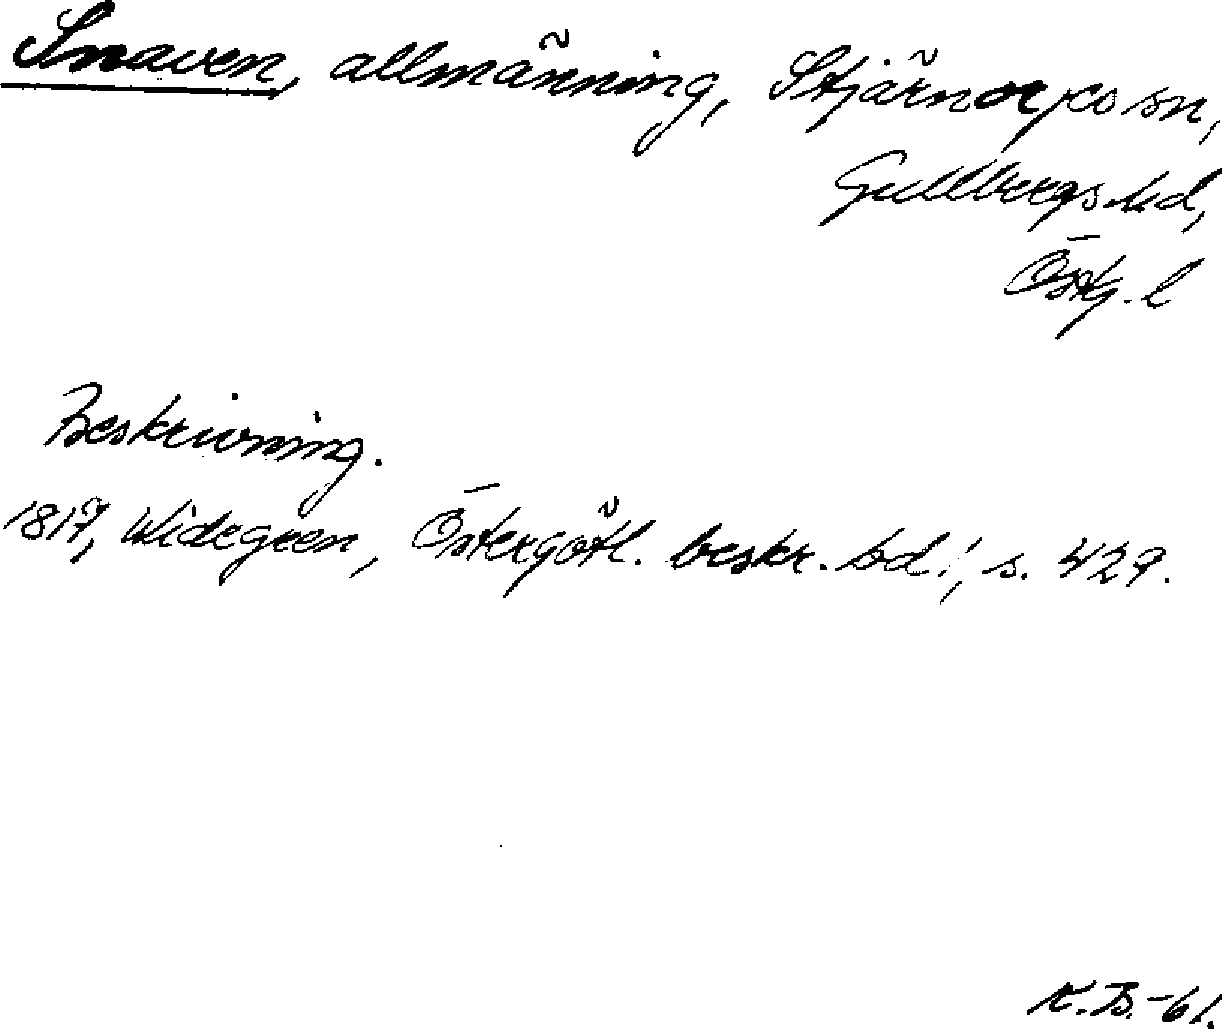 Snaven, allmänning, Stjärnorps sn,
Gullbergs hd,
Östg. l
Beskrivning.
1817, Widegren, Östergötl. beskr. bd 1, s. 429.
K.B.-61.